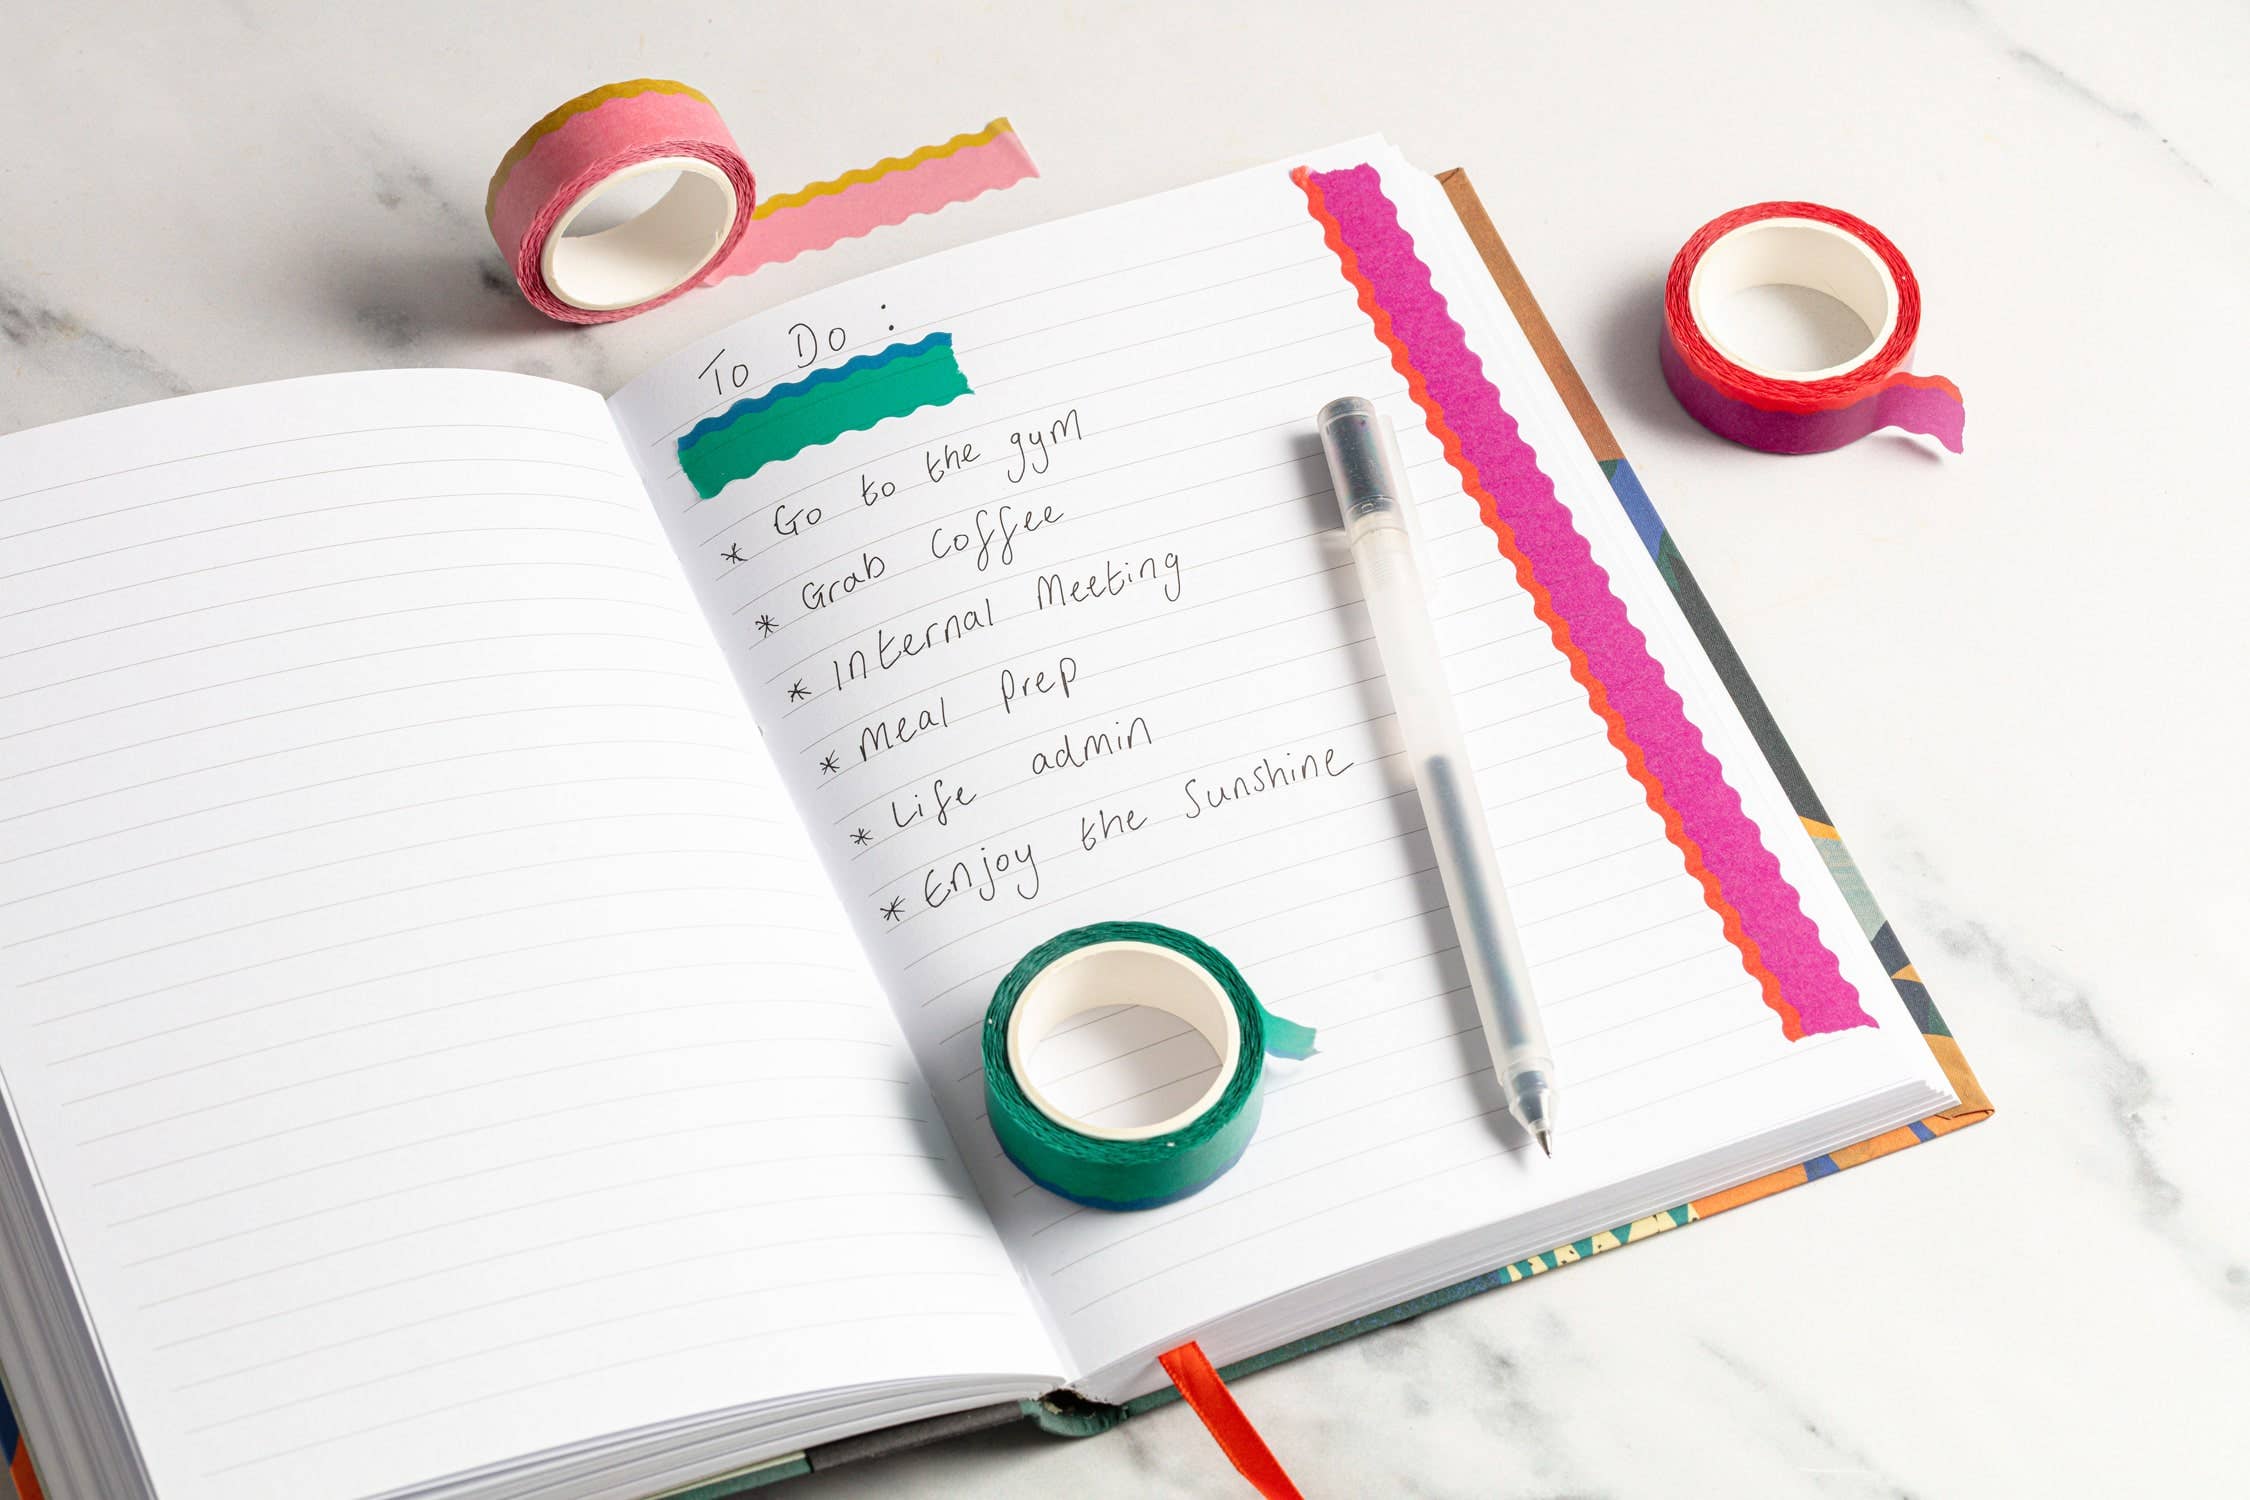 To Do :
* Go to the gym
* Grab Coffee
* Internal Meeting
* Meal Prep
* Life admin
* Enjoy the Sunshine